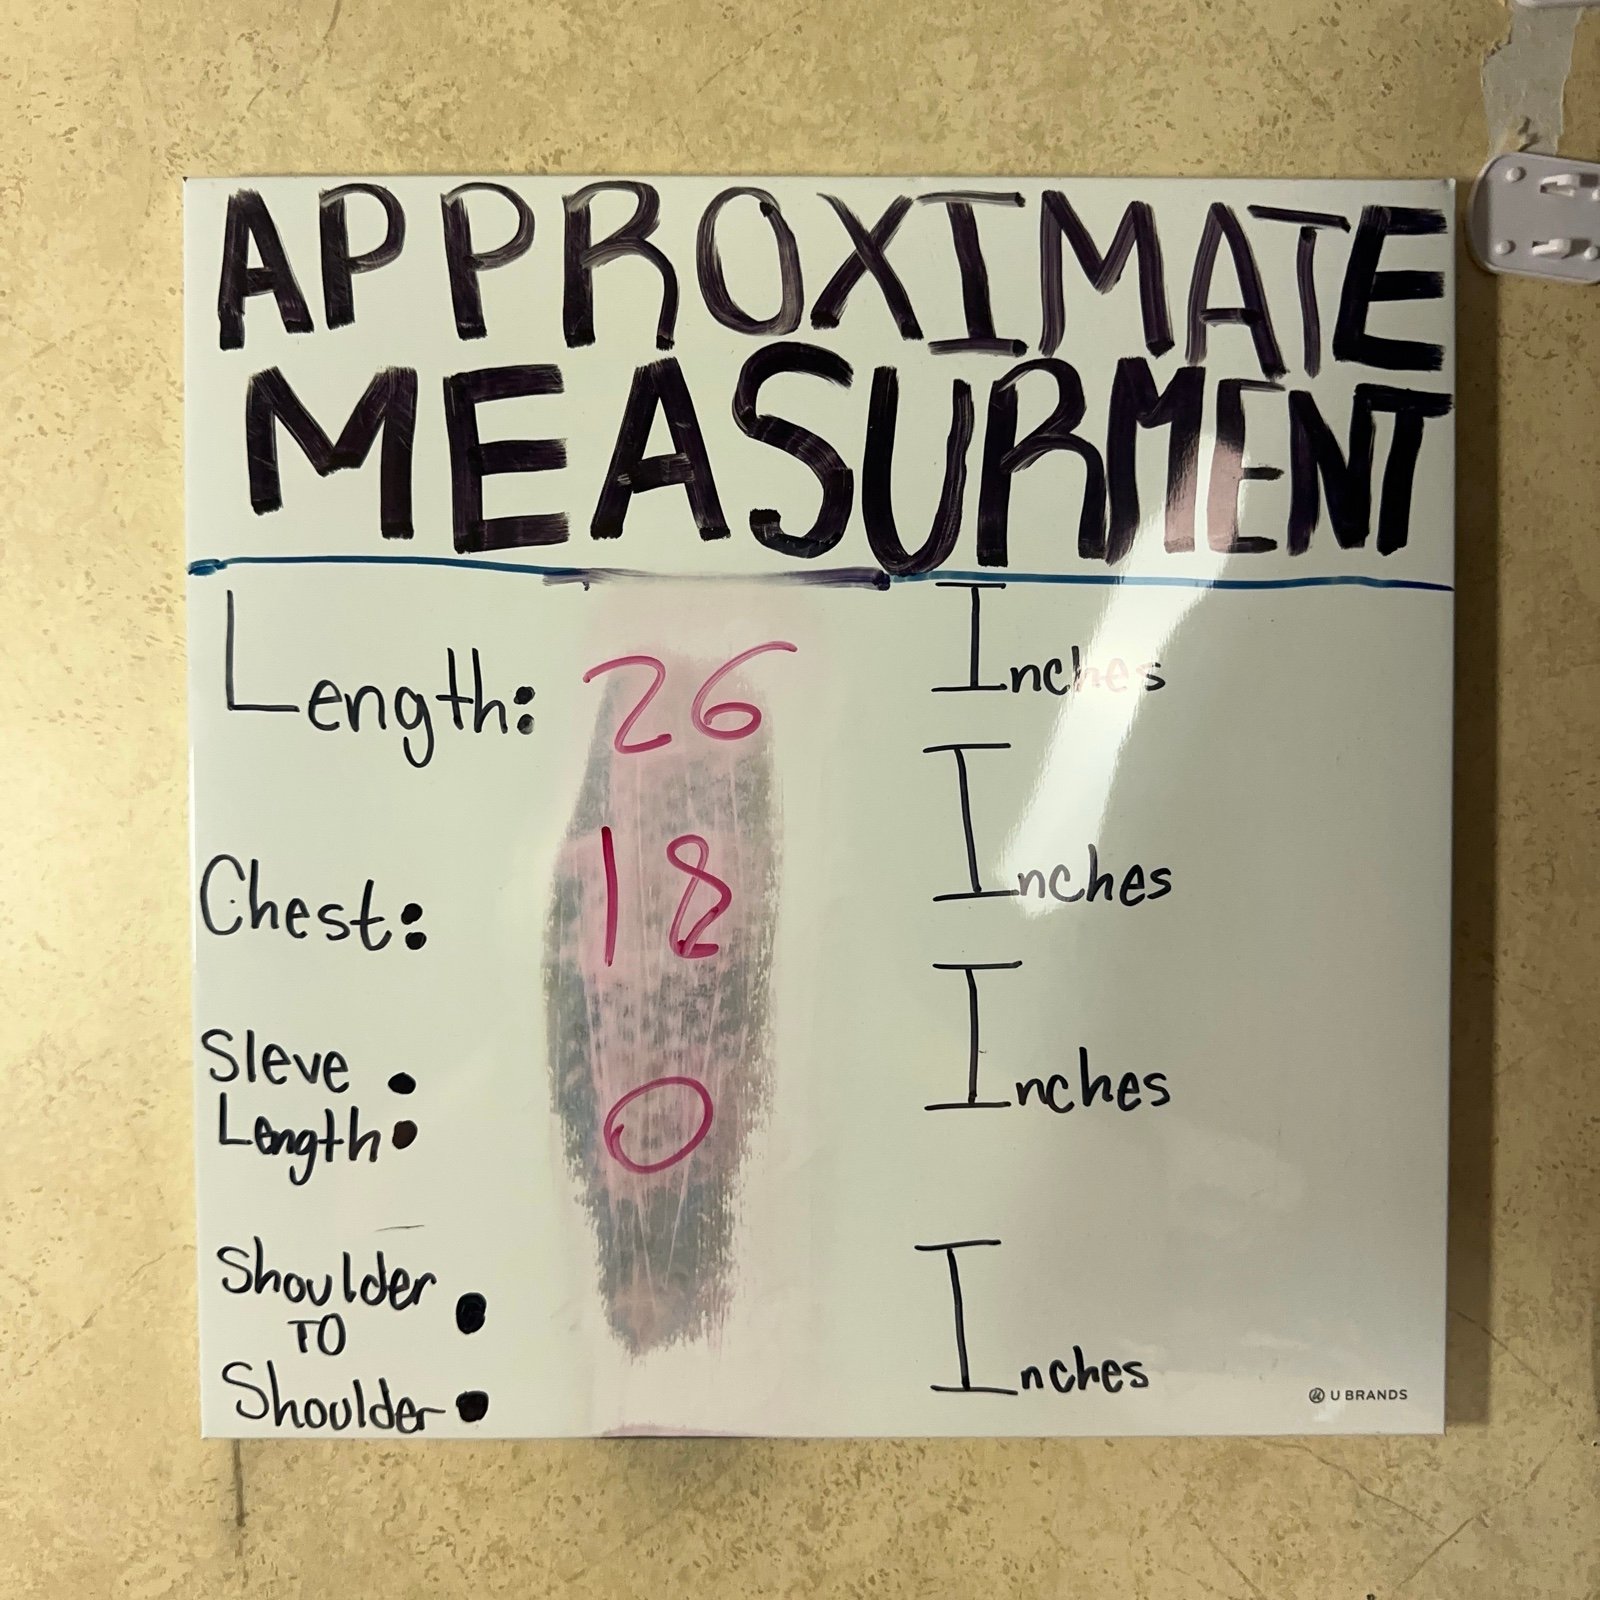 APPROXIMATE
MEASURMENT
Length: 26 Inches
Chest: 18 Inches
Sleve
Length: 0 Inches
Shoulder
TO
Shoulder: Inches
U BRANDS